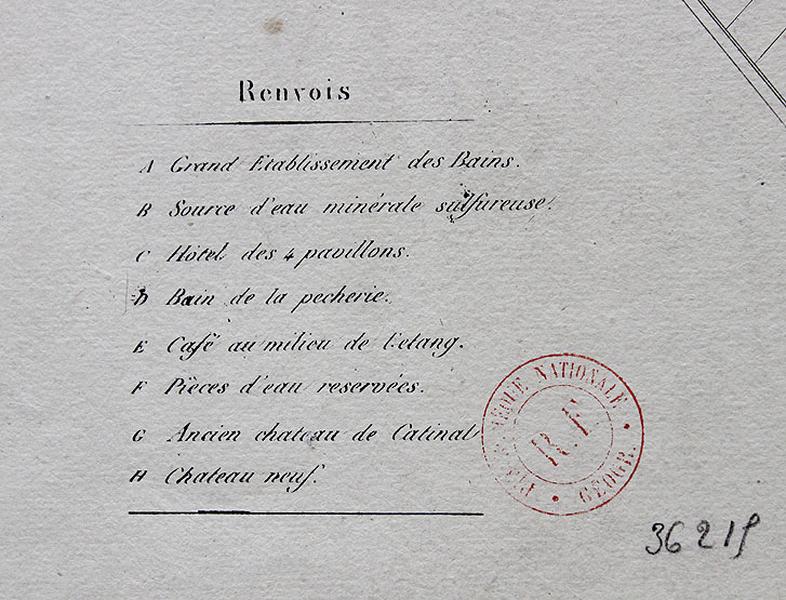 Renvois
A Grand Etablissement des Bains.
B Source d'eau minérale sulfureuse.
C Hôtel des 4 pavillons.
D Bain de la pecherie.
E Café au milieu de l'etang.
F Pieces d'eau reservées.
G Ancien chateau de Catinat
H Chateau neuf.
NATIONALE
R.F.
GEOGR.